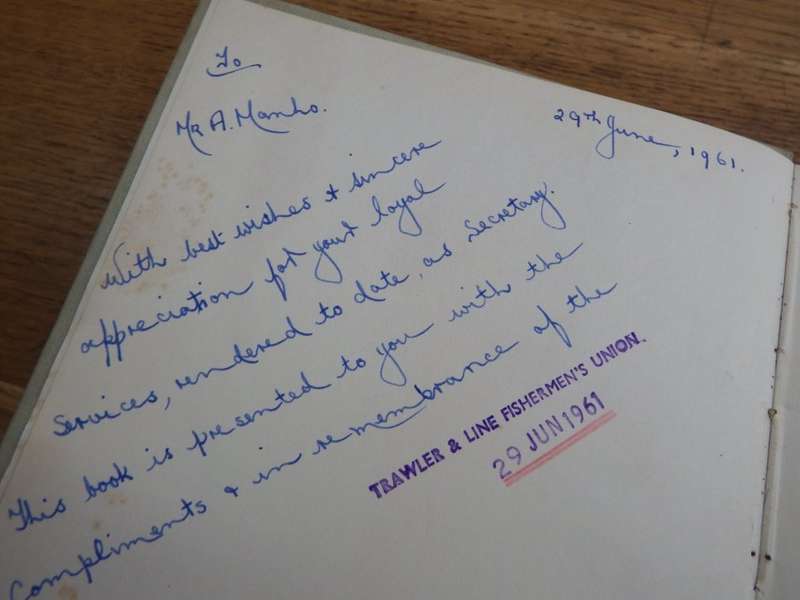 To
Mr A. Manho.
29th June, 1961.
With best wishes & sincere
appreciation for your loyal
Services, rendered to date, as Secretary.
This book is presented to you with the
Compliments & in remembrance of the
TRAWLER & LINE FISHERMEN'S UNION.
29 JUN 1961